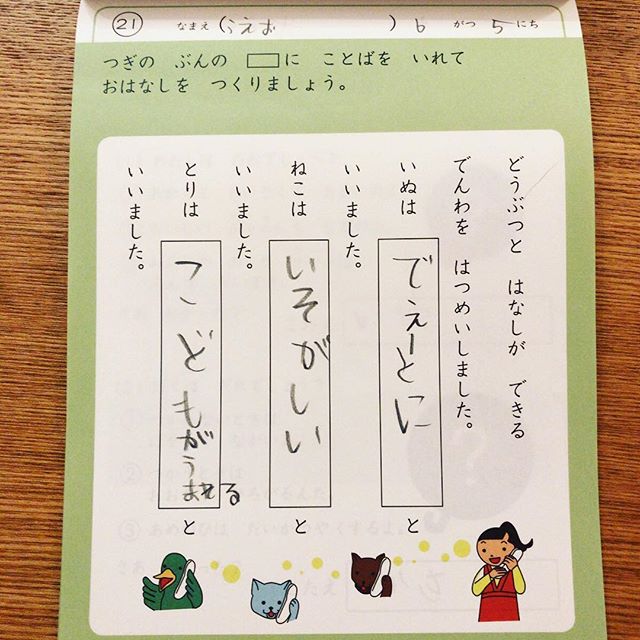 21 なまえ うえお 6 がつ 5 にち
つぎの ぶんの に ことばを いれて
おはなしを つくりましょう。
どうぶつと はなしが できる
でんわを はつめいしました。
いぬは でぇーとに と
いいました。
ねこは いそがしい と
いいました。
とりは こどもがうまれる と
いいました。